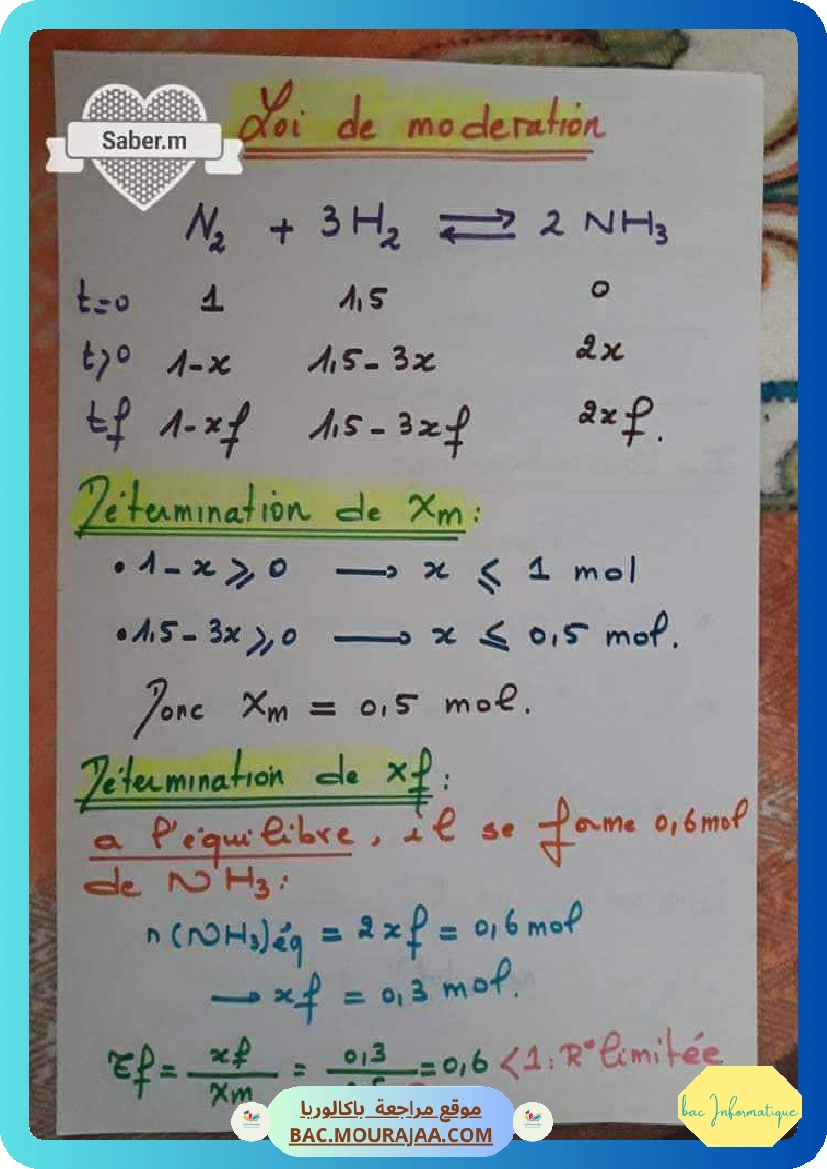 Saber.m
Loi de moderation
N₂ + 3H₂ ⇌ 2 NH₃
t=0 1 1,5 0
t>0 1-x 1,5-3x 2x
tf 1-xf 1,5-3xf 2xf.
Détermination de Xm:
• 1-x ⩾ 0 → x ⩽ 1 mol
• 1,5-3x ⩾ 0 → x ⩽ 0,5 mol.
Donc Xm = 0,5 mol.
Détermination de xf:
a l'équilibre, il se forme 0,6mol
de NH₃:
n(NH₃)éq = 2xf = 0,6 mol
→ xf = 0,3 mol.
τf = xf/Xm = 0,3/ = 0,6 <1: R° limitée
bac Informatique
موقع مراجعة باكالوريا
BAC.MOURAJAA.COM